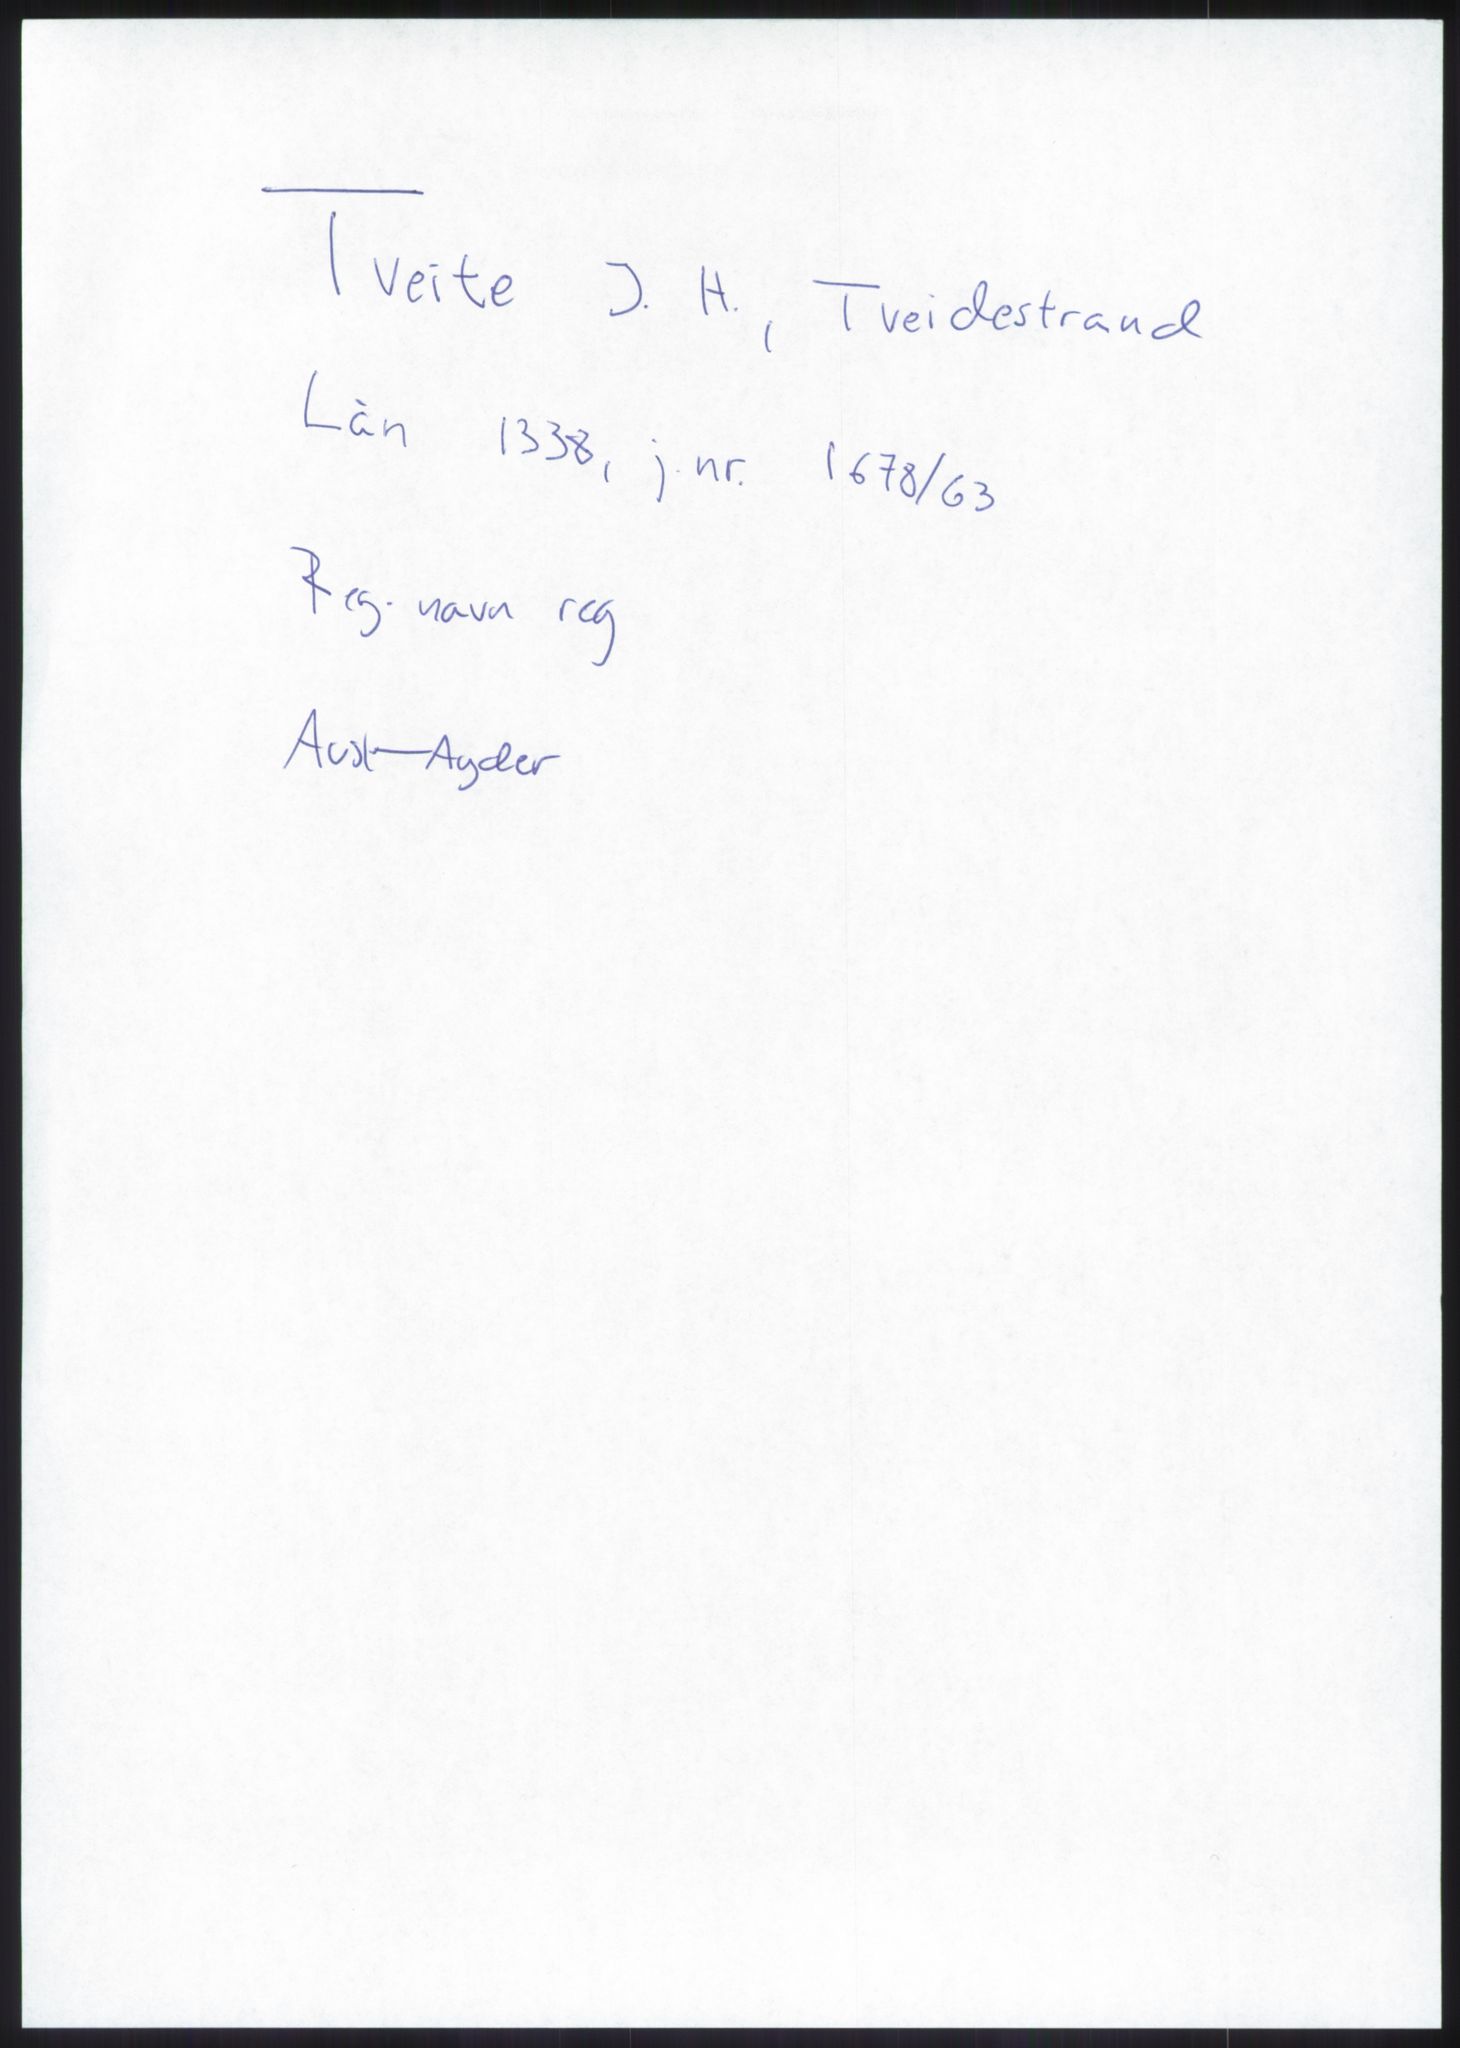 Tveite J. H., Tveidestrand
Lån 1338, j.nr. 1678/63
Reg. navn reg
Aust-Agder